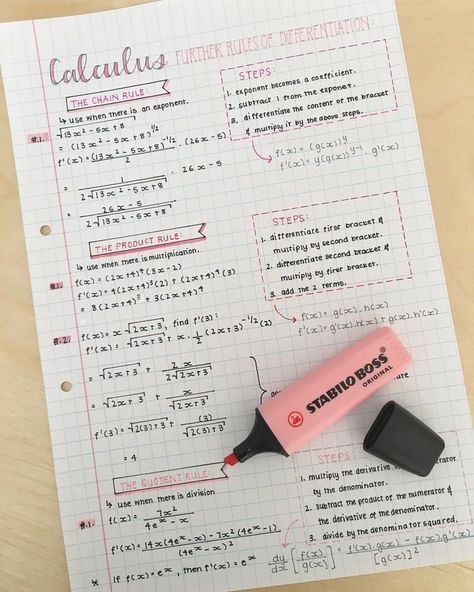 Calculus FURTHER RULES OF DIFFERENTIATION:
THE CHAIN RULE:
↳ use when there is an exponent.
#.1. √(13x² - 5x + 8)
= (13x² - 5x + 8)^1/2
f'(x) = (13x² - 5x + 8)^-1/2 · (26x - 5)
= 1 / 2√(13x² - 5x + 8) · 26x - 5
= 26x - 5 / 2√(13x² - 5x + 8)
STEPS:
1. exponent becomes a coefficient.
2. subtract 1 from the exponent.
3. differentiate the content of the bracket
& multiply it by the above steps.
f(x) = (g(x))^y
f'(x) = y(g(x))^y-1 · g'(x)
THE PRODUCT RULE:
↳ use when there is multiplication.
#1. f(x) = (2x+4)⁴(3x-2)
f'(x) = 4(2x+4)³(2) + (2x+4)⁴(3)
= 8(2x+4)³ + 3(2x+4)⁴
STEPS:
1. differentiate first bracket &
multiply by second bracket.
2. differentiate second bracket &
multiply by first bracket.
3. add the 2 terms.
f(x) = g(x).h(x)
f'(x) = g'(x).h(x) + g(x).h'(x)
#.2. f(x) = x√(2x+3), find f'(3):
f'(x) = √(2x+3) + x · 1/2 (2x+3)^-1/2 (2)
= √(2x+3) + 2x / 2√(2x+3)
= √(2x+3) + x / √(2x+3)
f'(3) = √(2(3)+3) + (3) / √(2(3)+3)
= 4
STABILO BOSS
ORIGINAL
THE QUOTIENT RULE:
↳ use when there is division
#.1 f(x) = 7x² / 4eˣ - x
f'(x) = 14x(4eˣ - x) - 7x²(4eˣ - 1) / (4eˣ - x)²
* If f(x) = eˣ, then f'(x) = eˣ
STEPS:
1. multiply the derivative
by the denominator.
2. subtract the product of the numerator &
the derivative of the denominator.
3. divide by the denominator squared.
dy/dx [f(x)/g(x)] = f'(x).g(x) - f(x).g'(x) / [g(x)]²